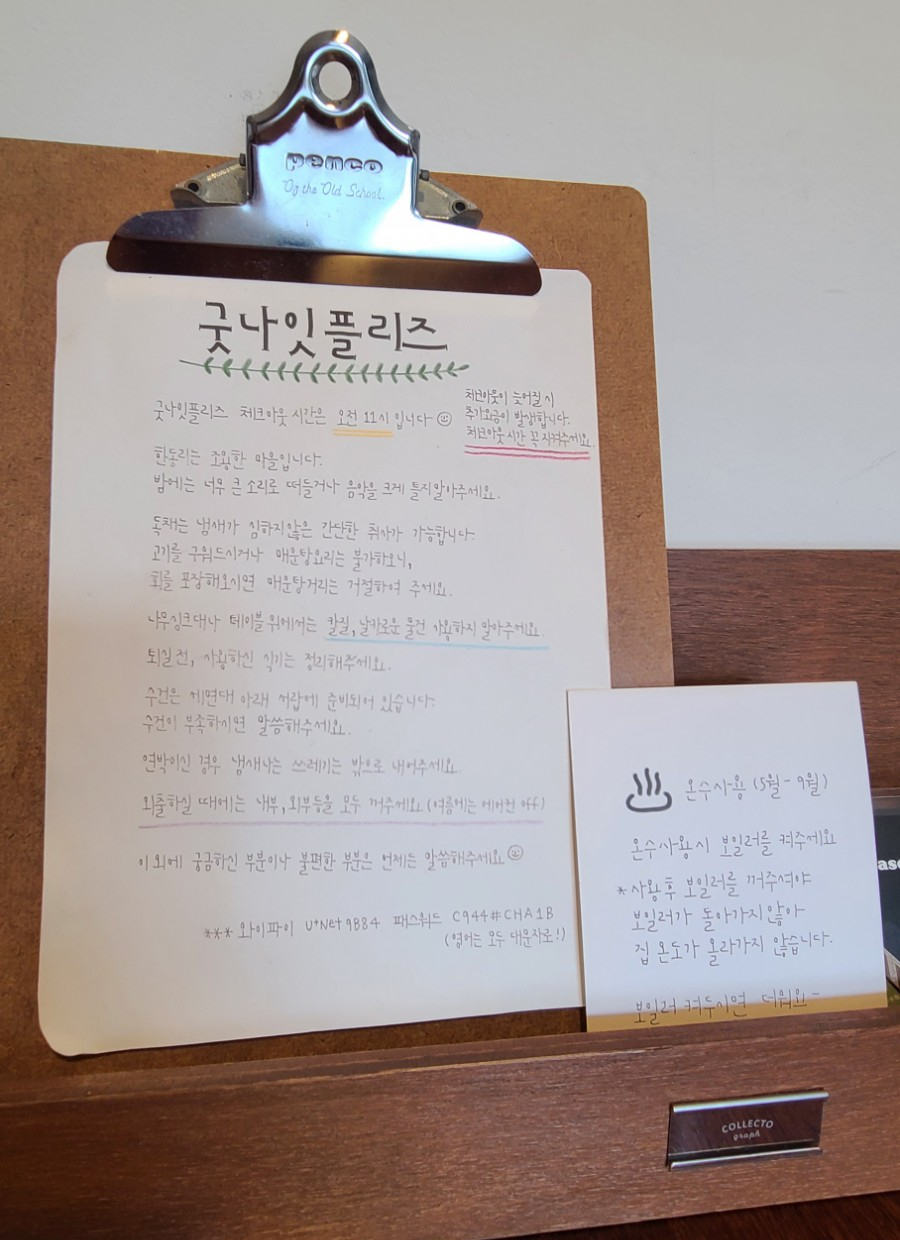 penco
Of the Old School.
굿나잇플리즈
굿나잇플리즈 체크아웃 시간은 오전 11시 입니다
체크아웃이 늦어질 시
추가요금이 발생합니다.
체크아웃시간 꼭 지켜주세요
한동리는 조용한 마을입니다.
밤에는 너무 큰 소리로 떠들거나 음악을 크게 틀지말아주세요.
독채는 냄새가 심하지않은 간단한 취사가 가능합니다.
고기를 구워드시거나 매운탕요리는 불가하오니,
회를 포장해오시면 매운탕거리는 거절하여 주세요.
나무싱크대나 테이블 위에서는 칼질, 날카로운 물건 사용하지 말아주세요.
퇴실 전, 사용하신 식기는 정리해주세요.
수건은 세면대 아래 서랍에 준비되어 있습니다.
수건이 부족하시면 말씀해주세요.
연박이신 경우 냄새나는 쓰레기는 밖으로 내어주세요.
외출하실 때에는 내부, 외부등을 모두 꺼주세요 (여름에는 에어컨 off)
이 외에 궁금하신 부분이나 불편한 부분은 언제든 말씀해주세요
*** 와이파이 U+Net9B84 패스워드 C944#CHA1B
(영어는 모두 대문자로!)
온수사용 (5월 - 9월)
온수사용시 보일러를 켜주세요
* 사용 후 보일러를 꺼주셔야
보일러가 돌아가지 않아
집 온도가 올라가지 않습니다.
보일러 켜두시면 더워요~
COLLECTO
graph